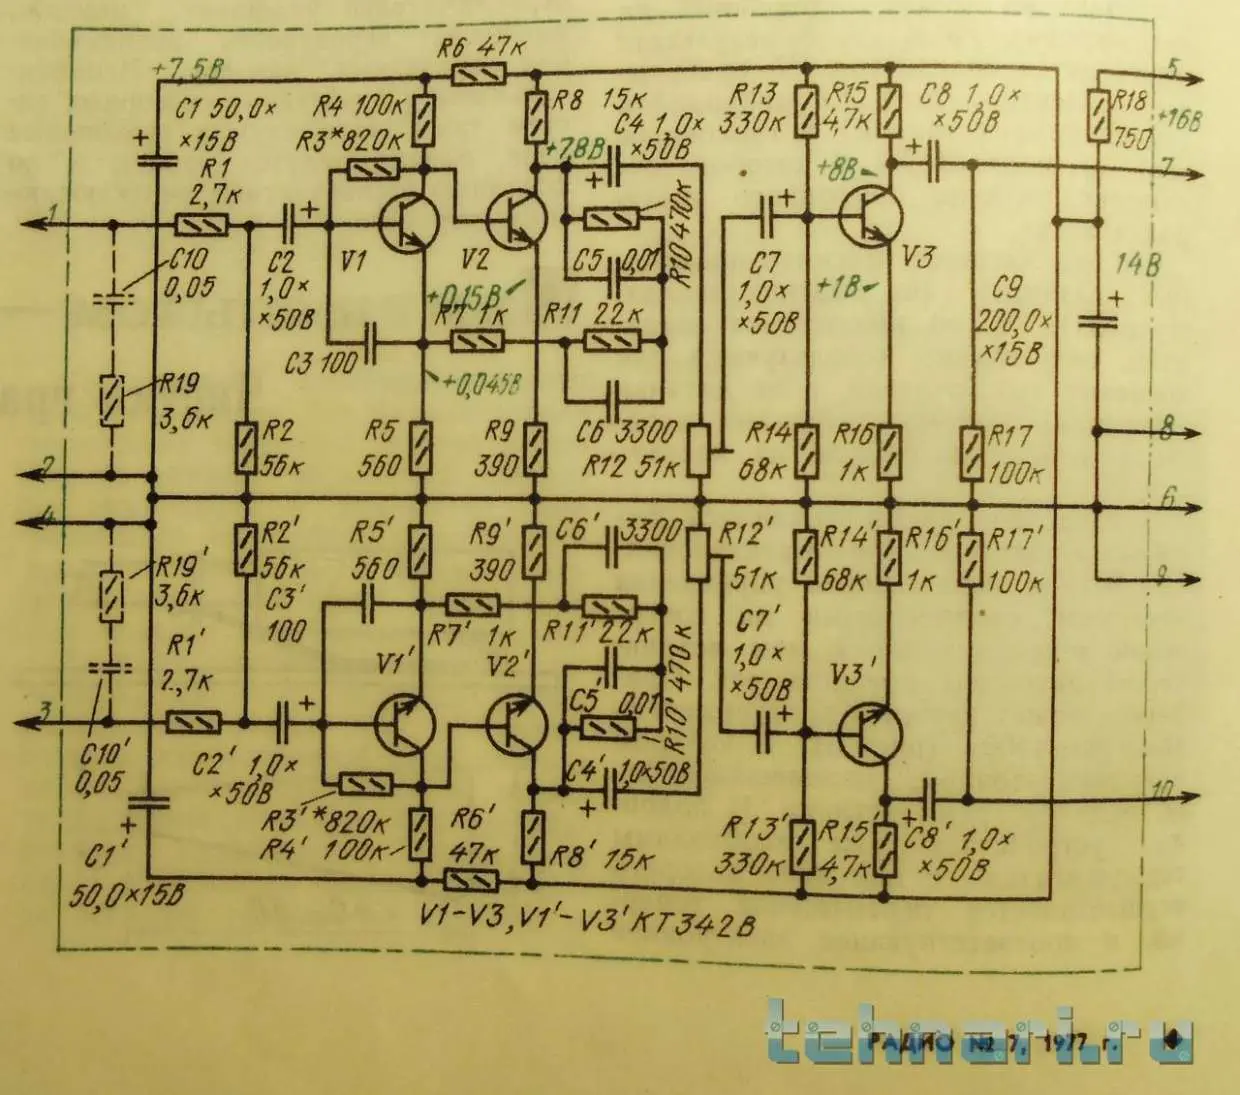 R6 47к
+7,5В
C1 50,0×
×15В
R4 100к
R3*820к
R8 15к
C4 1,0×
×50В
+7,8В
R13
330к
R15
4,7к
C8 1,0×
×50В
5
R18
750
+16В
R1
2,7к
+8В
7
1
C10
0,05
C2
1,0×
×50В
V1
V2
C5 0,01
R10 470к
C7
1,0×
×50В
V3
+1В
14В
+0,15В
R7 1к
R11 22к
C9
200,0×
×15В
C3 100
+0,045В
R19
3,6к
R2
56к
R5
560
R9
390
C6 3300
R12 51к
R14
68к
R16
1к
R17
100к
8
2
6
4
R2'
56к
R5'
560
R9'
390
C6'
3300
R12'
51к
R14'
68к
R16'
1к
R17'
100к
9
R19'
3,6к
C3'
100
R7' 1к
R11' 22к
C7'
1,0×
×50В
R1'
2,7к
V1'
V2'
C5' 0,01
R10' 470к
V3'
3
C10'
0,05
C2' 1,0×
×50В
C4' 1,0×50В
10
R3'*820к
R4' 100к
R6'
47к
R8' 15к
R13'
330к
R15'
4,7к
C8' 1,0×
×50В
C1'
50,0×15В
V1-V3, V1'-V3' КТ342В
tehnari.ru
РАДИО № 7, 1977 г.